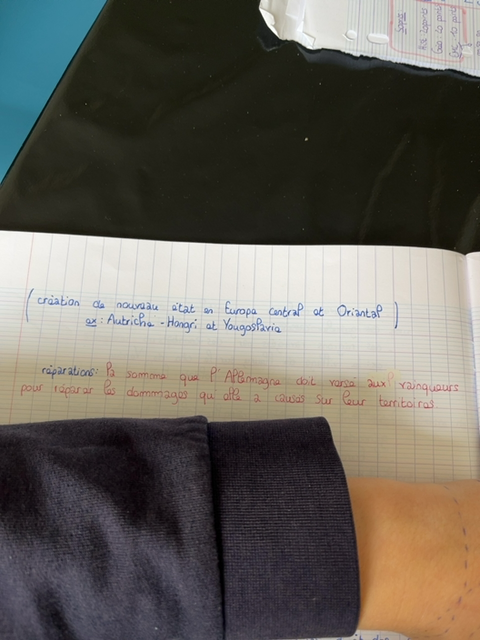 (création de nouveau état en Europe central et Oriental)
ex: Autriche - Hongri et Yougoslavie
réparations: la somme que l'Allemagne doit versé aux vainqueurs
pour réparer les dommages qu'elle a causés sur leur territoires